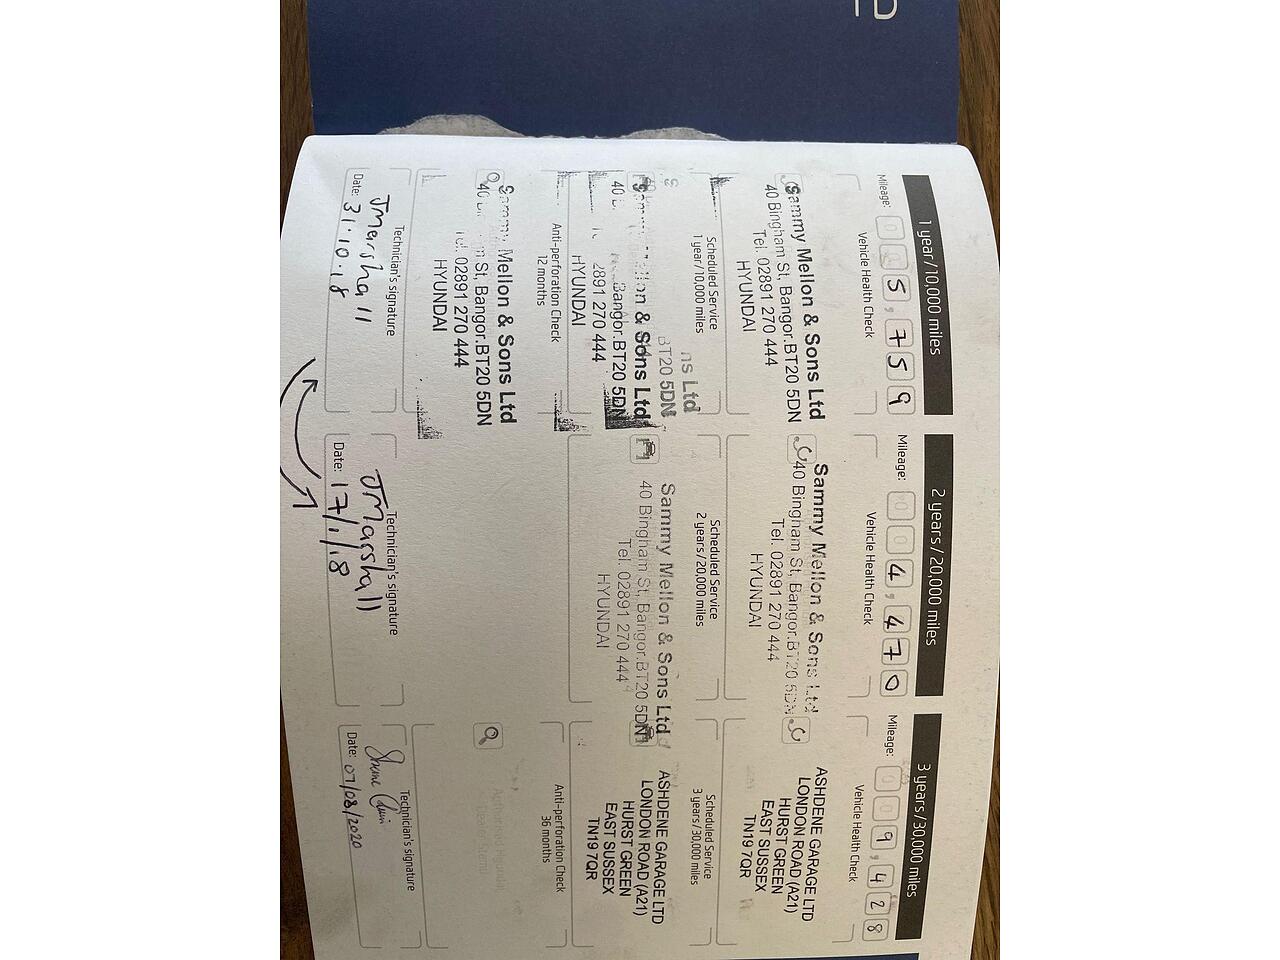 1 year / 10,000 miles
Mileage: 0 0 5 , 7 5 9
Vehicle Health Check
Sammy Mellon & Sons Ltd
40 Bingham St, Bangor.BT20 5DN
Tel. 02891 270 444
HYUNDAI
Scheduled Service
1 year/10,000 miles
ns Ltd
BT20 5DN
Mellon & Sons Ltd
Bangor.BT20 5DN
2891 270 444
HYUNDAI
Anti-perforation Check
12 months
Sammy Mellon & Sons Ltd
St, Bangor.BT20 5DN
Tel. 02891 270 444
HYUNDAI
Technician's signature
JMarshall
Date: 31.10.18
2 years / 20,000 miles
Mileage: 0 0 4 , 4 7 0
Vehicle Health Check
Sammy Mellon & Sons Ltd
40 Bingham St, Bangor.BT20 5DN
Tel. 02891 270 444
HYUNDAI
Scheduled Service
2 years/20,000 miles
Sammy Mellon & Sons Ltd
40 Bingham St, Bangor.BT20 5DN
Tel. 02891 270 444
HYUNDAI
Technician's signature
JMarshall
Date: 17/1/18
3 years / 30,000 miles
Mileage: 0 0 9 , 4 2 8
Vehicle Health Check
ASHDENE GARAGE LTD
LONDON ROAD (A21)
HURST GREEN
EAST SUSSEX
TN19 7QR
Scheduled Service
3 years/30,000 miles
ASHDENE GARAGE LTD
LONDON ROAD (A21)
HURST GREEN
EAST SUSSEX
TN19 7QR
Anti-perforation Check
36 months
Authorised Hyundai
Dealer Stamp
Technician's signature
Date: 07/08/2020